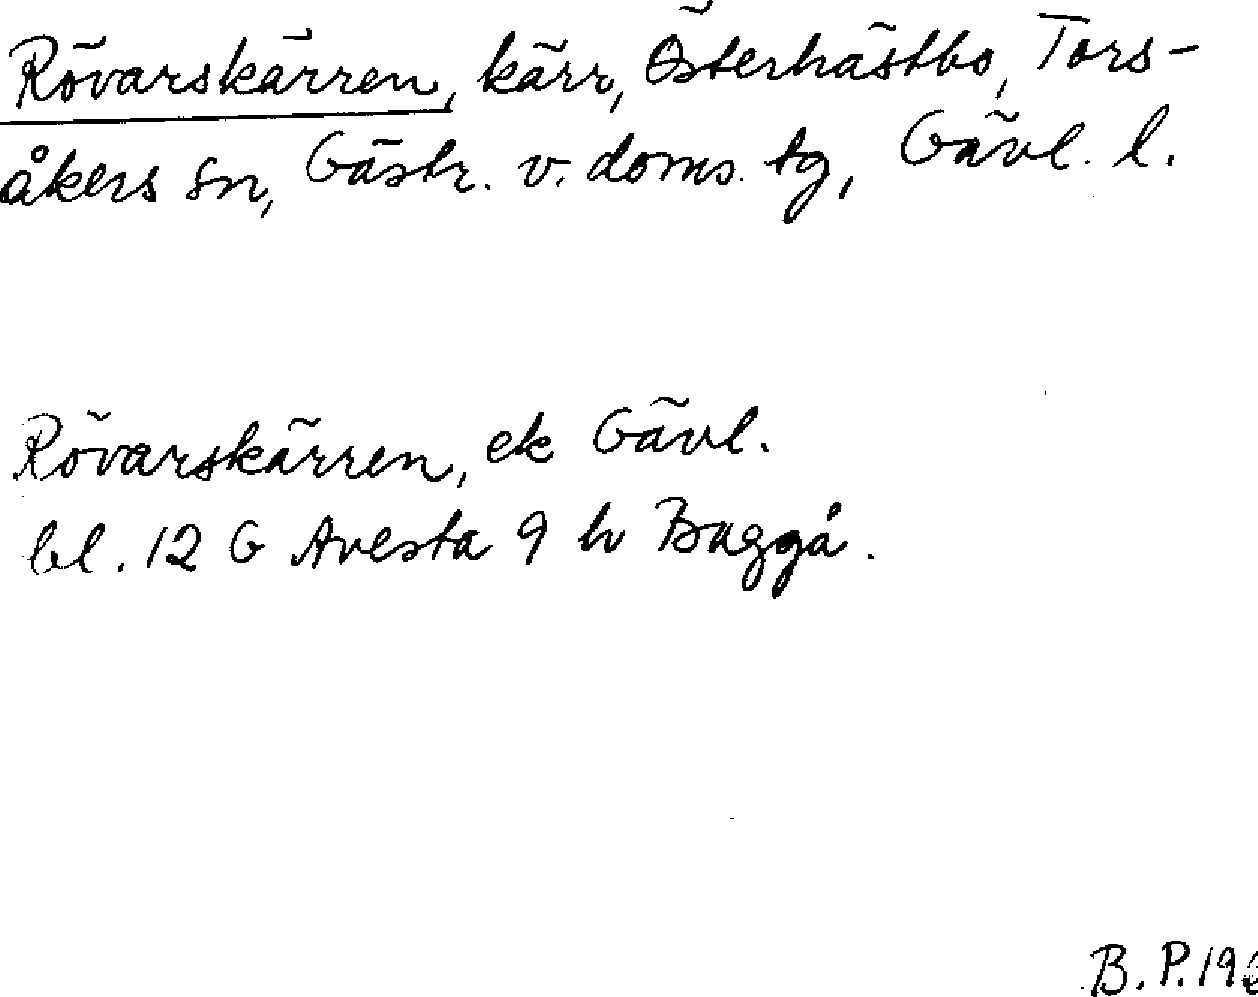 Rövarskärren, kärr, Österhästbo, Tors-
åkers sn, Gästr. v. doms. tg, Gävl. l.
Rövarskärren, ek Gävl.
bl. 12 G Avesta 9 h Baggå.
B.P.19